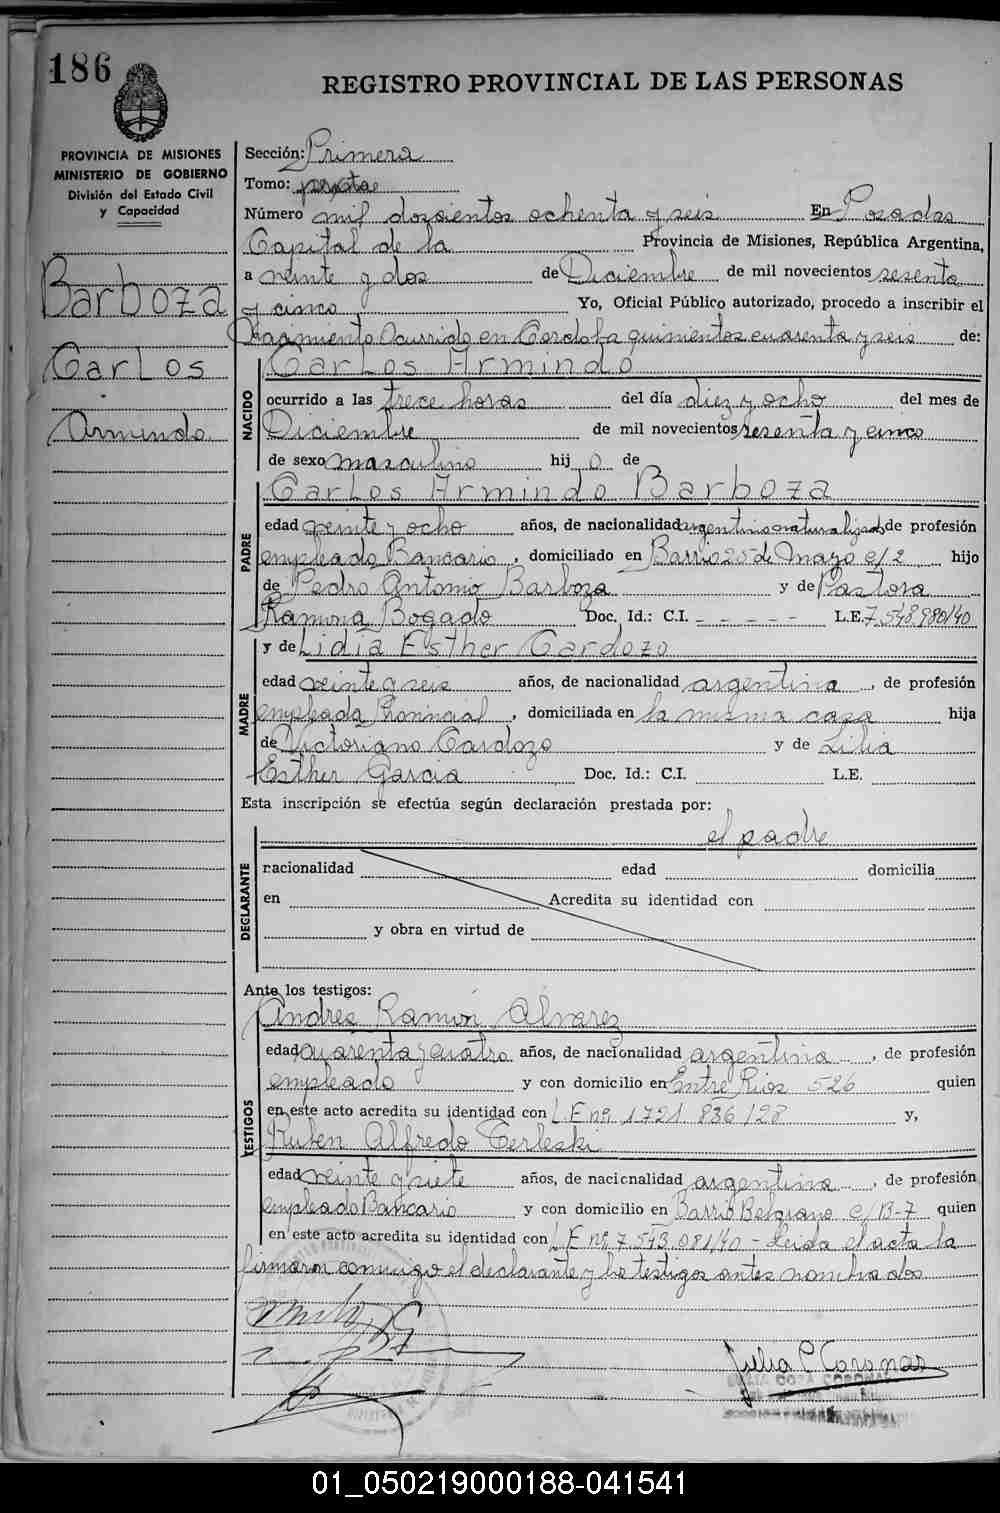 186
REGISTRO PROVINCIAL DE LAS PERSONAS
PROVINCIA DE MISIONES
MINISTERIO DE GOBIERNO
División del Estado Civil
y Capacidad
Barboza
Carlos
Armindo
Sección: Primera
Tomo:
Número mil doscientos ochenta y seis En Posadas
Capital de la Provincia de Misiones, República Argentina,
a veinte y dos de Diciembre de mil novecientos sesenta
y cinco Yo, Oficial Público autorizado, procedo a inscribir el
Nacimiento Ocurrido en Cordoba quinientos cuarenta y seis de:
NACIDO
Carlos Armindo
ocurrido a las trece horas del día diez y ocho del mes de
Diciembre de mil novecientos sesenta y cinco
de sexo masculino hijo de
PADRE
Carlos Armindo Barboza
edad veinte y ocho años, de nacionalidad argentino naturalizado de profesión
empleado Bancario, domiciliado en Barrio 25 de Mayo c/2 hijo
de Pedro Antonio Barboza y de Pastora
Ramona Bogado Doc. Id.: C.I. - - - - - L.E. 7.548.980/40
MADRE
y de Lidia Esther Cardozo
edad veinte y seis años, de nacionalidad argentina, de profesión
empleada Provincial, domiciliada en la misma casa hija
de Victoriano Cardozo y de Lilia
Esther Garcia Doc. Id.: C.I. L.E.
Esta inscripción se efectúa según declaración prestada por:
el padre
DECLARANTE
nacionalidad edad domicilia
en Acredita su identidad con
y obra en virtud de
Ante los testigos:
TESTIGOS
Andres Ramón Alvarez
edad cuarenta y cuatro años, de nacionalidad argentina, de profesión
empleado y con domicilio en Entre Rios 526 quien
en este acto acredita su identidad con L.E nº 1.721.836/28 y,
Ruben Alfredo Terleski
edad veinte y siete años, de nacionalidad argentina, de profesión
empleado Bancario y con domicilio en Barrio Belgrano c/B-7 quien
en este acto acredita su identidad con L.E nº 7.543.081/40 - Leida el acta la
firmaron conmigo el declarante y los testigos antes nombrados
Julia C Coronas
01_050219000188-041541